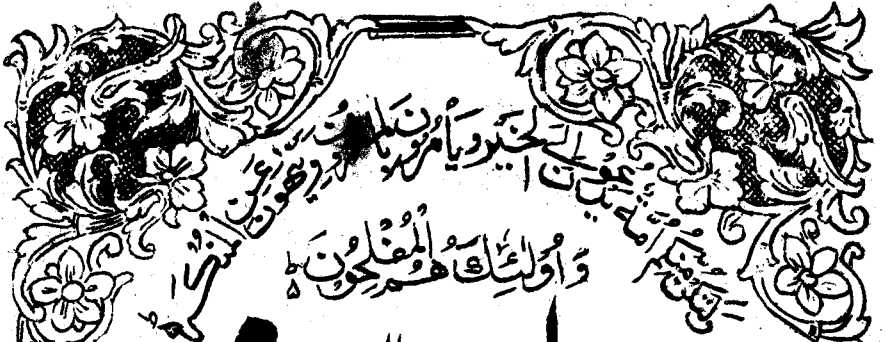 ولتكن منكم أمة يدعون إلى الخير ويأمرون بالمعروف وينهون عن المنكر ط
وَأُولَٰئِكَ هُمُ الْمُفْلِحُونَ ط